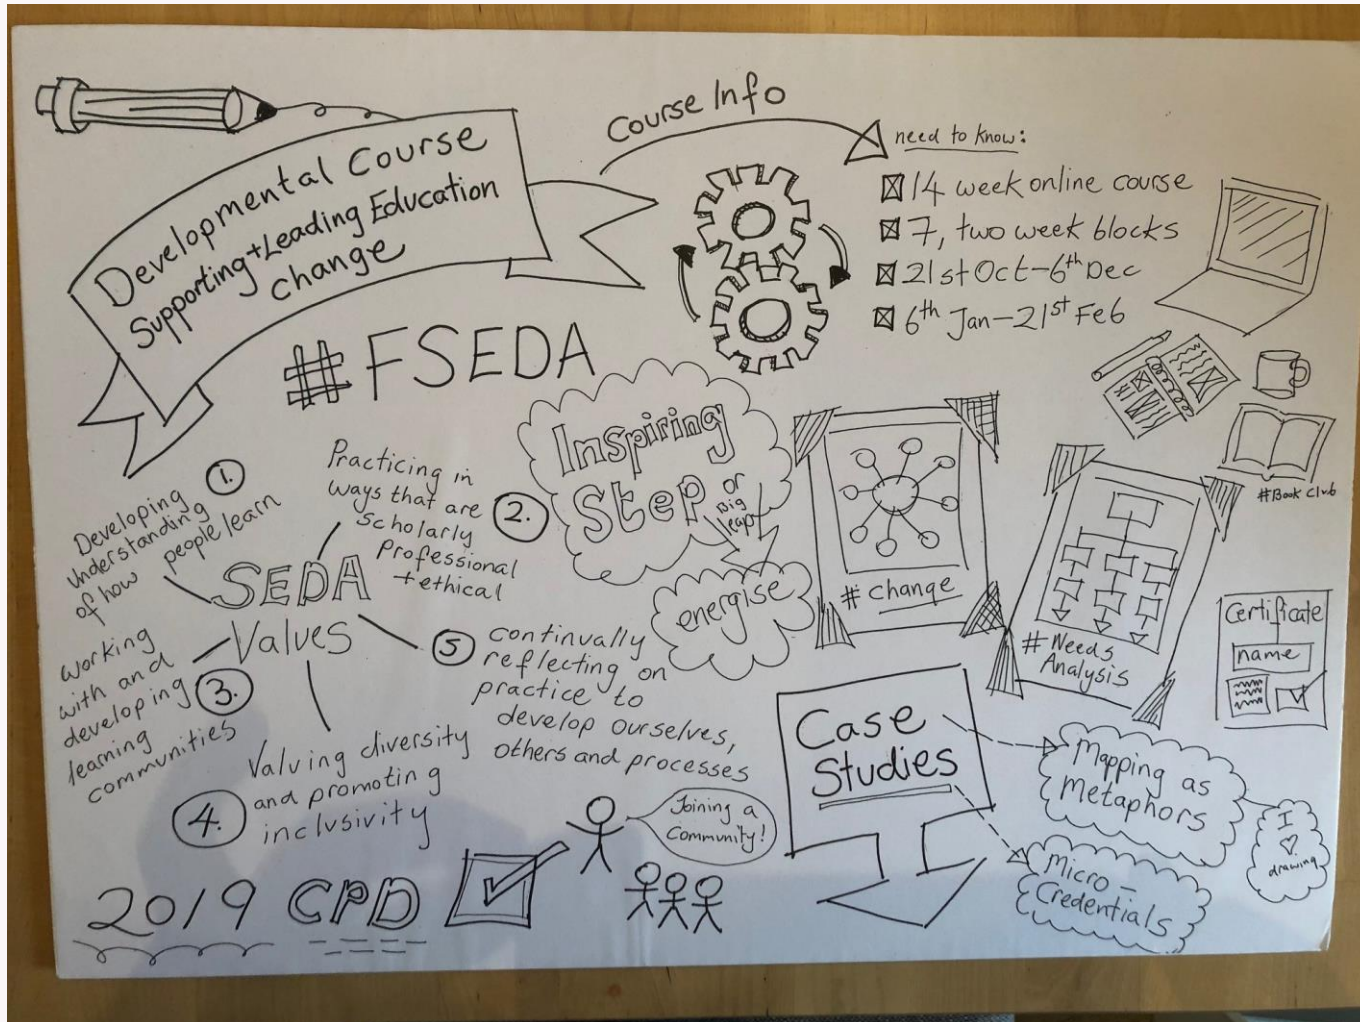 Developmental Course
Supporting + Leading Education
change
#FSEDA
Course Info
need to know:
14 week online course
7, two week blocks
21st Oct - 6th Dec
6th Jan - 21st Feb
Inspiring
Step
or
Big
leap
energise
# change
# Needs
Analysis
#Book Club
Certificate
name
SEDA
Values
1.
Developing
Understanding
of how people learn
2.
Practicing in
ways that are
scholarly
professional
+ ethical
3.
working
with and
developing
learning
communities
4.
Valuing diversity
and promoting
inclusivity
5
continually
reflecting on
practice to
develop ourselves,
others and processes
Case
Studies
Mapping as
Metaphors
I
drawing
Micro-
Credentials
Joining a
Community!
2019 CPD